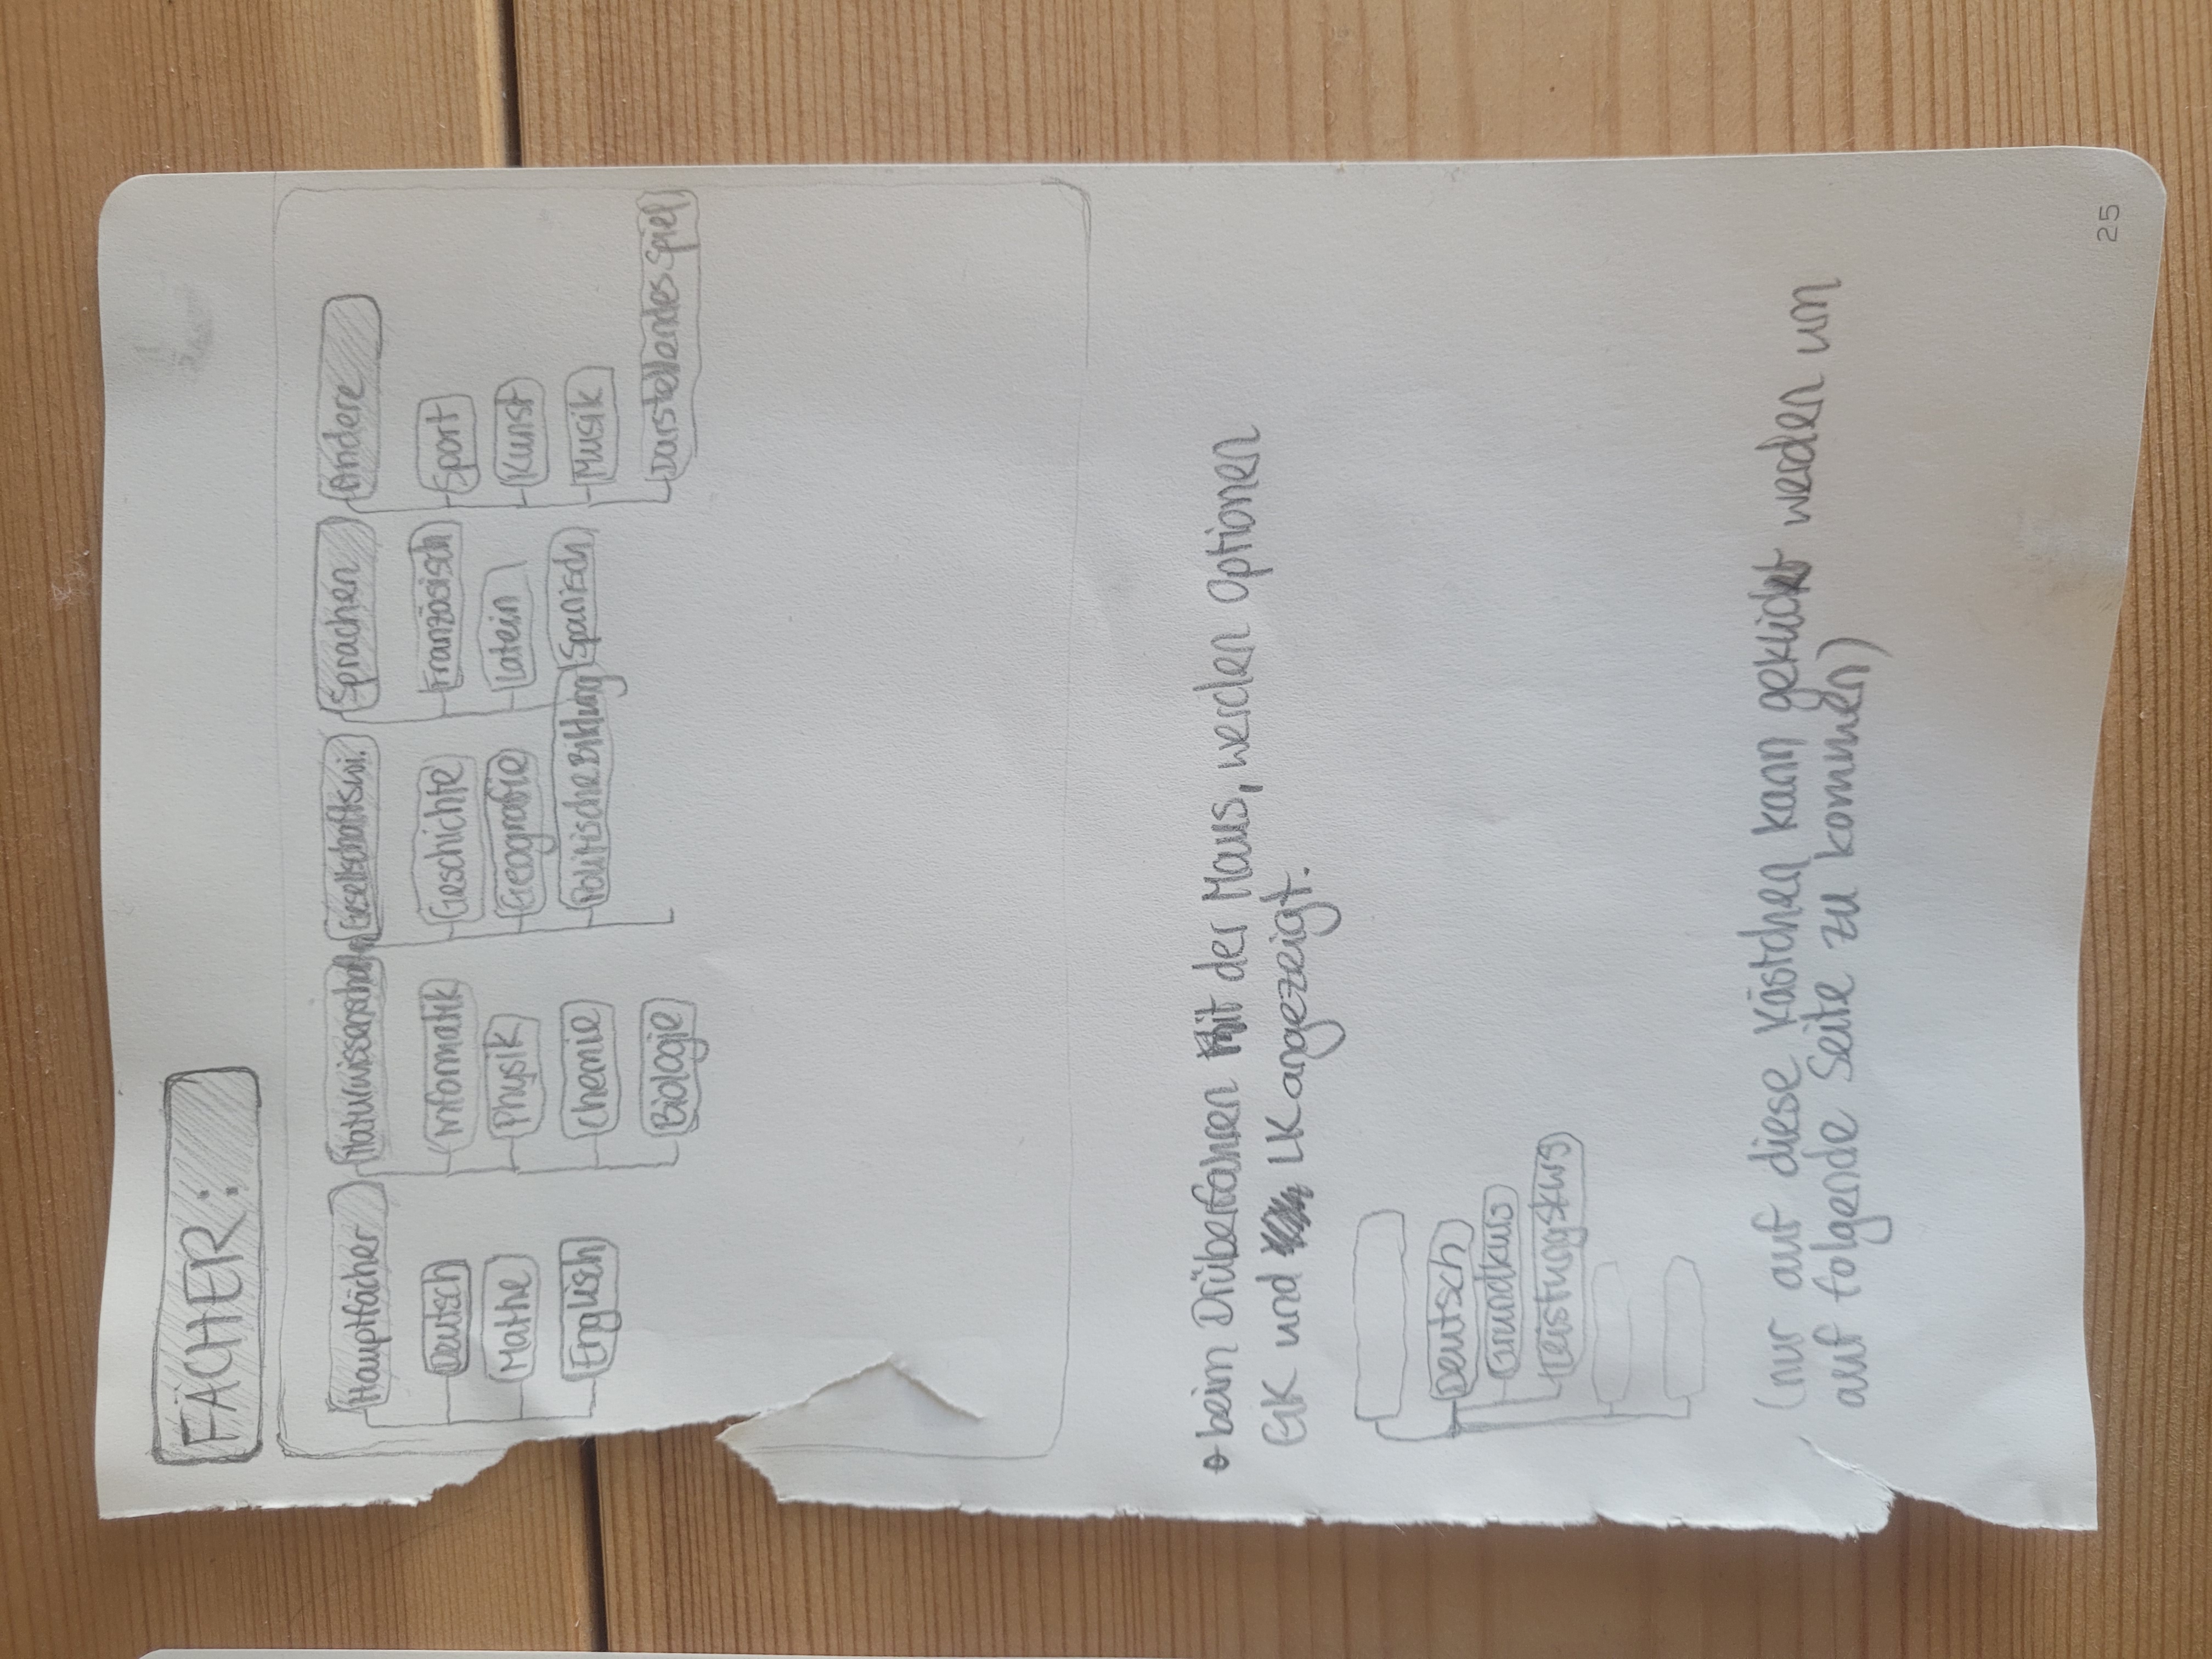 FÄCHER:
Hauptfächer
Deutsch
Mathe
Englisch
Naturwissenschaften
Informatik
Physik
Chemie
Biologie
Gesellschaftswi.
Geschichte
Geografie
Politische Bildung
Sprachen
Französisch
Latein
Spanisch
Andere
Sport
Kunst
Musik
Darstellendes Spiel
beim Drüberfahren Mit der Maus, werden Optionen
GK und LK angezeigt.
Deutsch
Grundkurs
Leistungskurs
(nur auf diese Kästchen kann geklickt werden um
auf folgende Seite zu kommen)
25